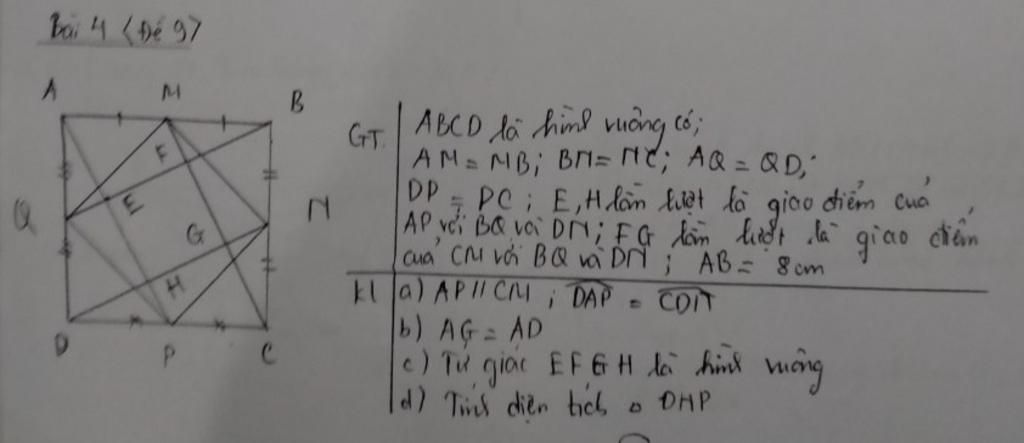 Bài 4 (Đề 9)
A M B
F
Q E N
G
H
D P C
GT ABCD là hình vuông có;
AM = MB; BN = NC; AQ = QD;
DP = PC; E, H lần lượt là giao điểm của
AP với BQ và DN; FG lần lượt là giao điểm
của CM với BQ và DN; AB = 8cm
KL a) AP // CM; DAP = CDN
b) AG = AD
c) Tứ giác EFGH là hình vuông
d) Tính diện tích △ DHP